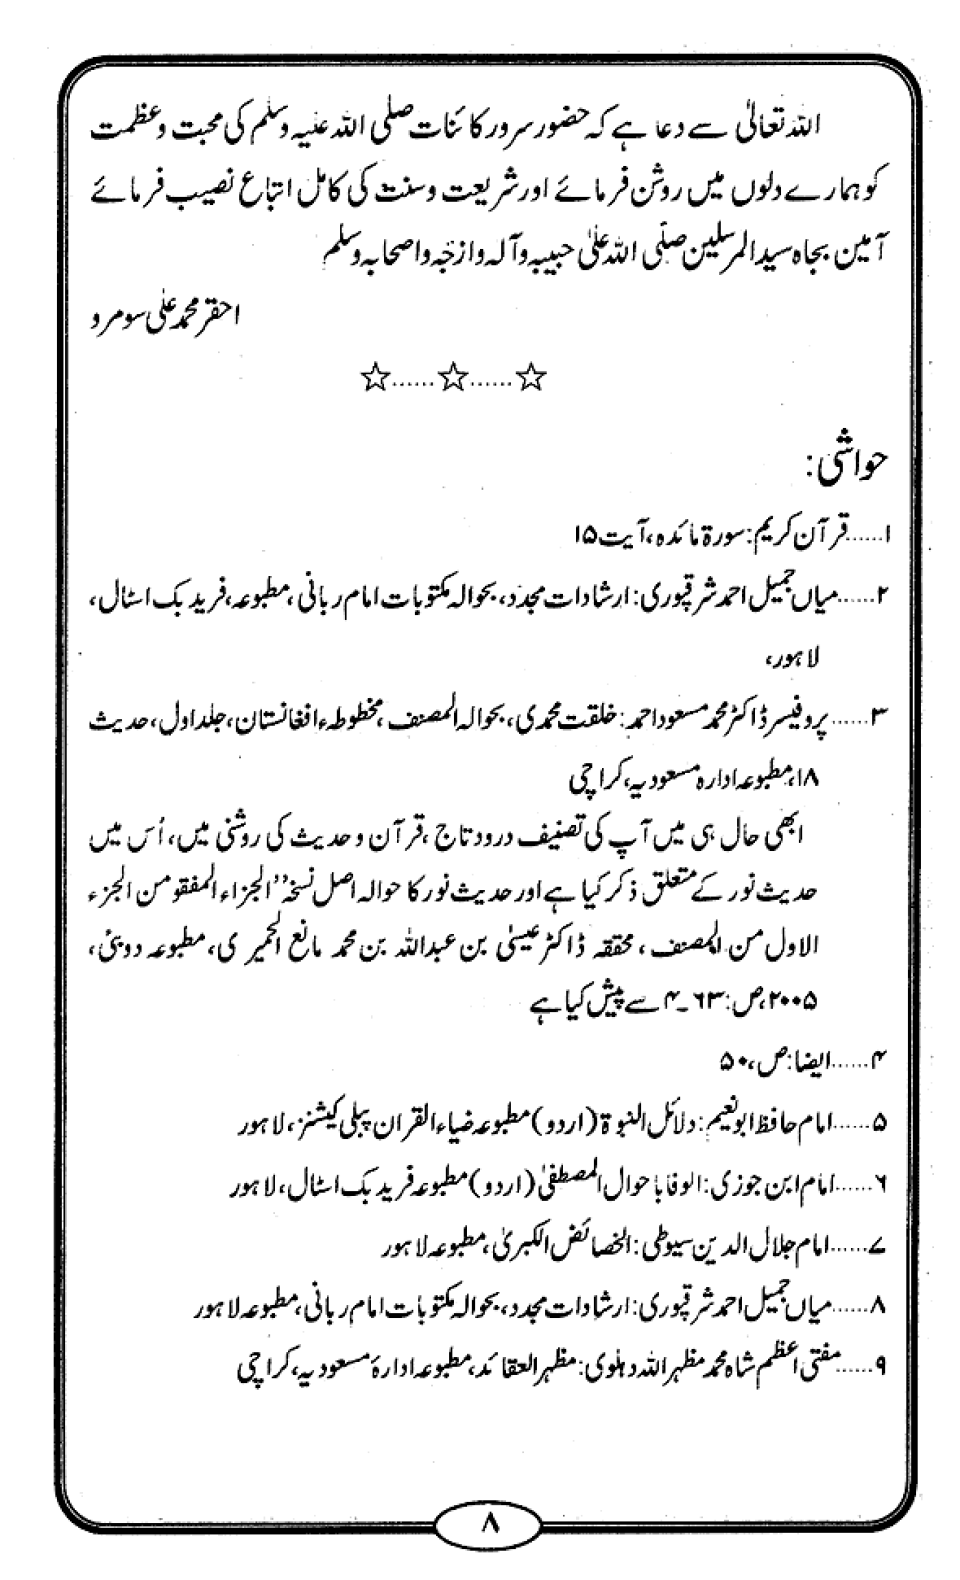 اللہ تعالیٰ سے دعا ہے کہ حضور سرور کائنات صلی اللہ علیہ وسلم کی محبت و عظمت
کو ہمارے دلوں میں روشن فرمائے اور شریعت و سنت کی کامل اتباع نصیب فرمائے
آمین بجاہ سید المرسلین صلی اللہ علیٰ حبیبہ و آلہ و ازجہ و اصحابہ وسلم
احقر محمد علی سومرو
☆......☆......☆
حواشی:
۱......قرآن کریم: سورۃ مائدہ، آیت ۱۵
۲......میاں جمیل احمد شرقپوری: ارشادات مجدد، بحوالہ مکتوبات امام ربانی، مطبوعہ، فرید بک اسٹال،
لاہور،
۳......پروفیسر ڈاکٹر محمد مسعود احمد: خلقت محمدی، بحوالہ المصنف، مخطوطہء افغانستان، جلد اول، حدیث
۱۸، مطبوعہ ادارہ مسعودیہ، کراچی
ابھی حال ہی میں آپ کی تصنیف درود تاج، قرآن و حدیث کی روشنی میں، اُس میں
حدیث نور کے متعلق ذکر کیا ہے اور حدیث نور کا حوالہ اصل نسخہ ”الجزاء المفقو من الجزء
الاول من المصنف، محققہ ڈاکٹر عیسیٰ بن عبداللہ بن محمد مانع الحمیری، مطبوعہ دوبئ،
۲۰۰۵، ص: ۶۳۔۴ سے پیش کیا ہے
۴......ایضا: ص، ۵۰
۵......امام حافظ ابو نعیم: دلائل النبوۃ (اردو) مطبوعہ ضیاء القران پبلی کیشنز، لاہور
۶......امام ابن جوزی: الوفا باحوال المصطفیٰ (اردو) مطبوعہ فرید بک اسٹال، لاہور
۷......امام جلال الدین سیوطی: الخصائص الکبریٰ، مطبوعہ لاہور
۸......میاں جمیل احمد شرقپوری: ارشادات مجدد، بحوالہ مکتوبات امام ربانی، مطبوعہ لاہور
۹......مفتی اعظم شاہ محمد مظہر اللہ دہلوی: مظہر العقائد، مطبوعہ ادارۂ مسعودیہ، کراچی
۸